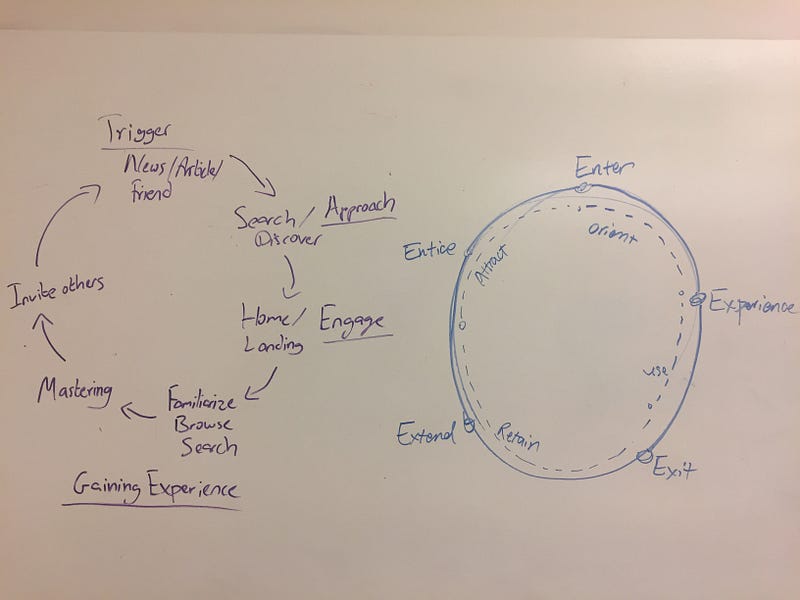 Trigger
News/Article/
friend
Search/ Approach
Discover
Home/ Engage
Landing
Familiarize
Browse
Search
Mastering
Invite others
Gaining Experience
Enter
orient
Experience
use
Exit
Retain
Extend
Entice
Attract